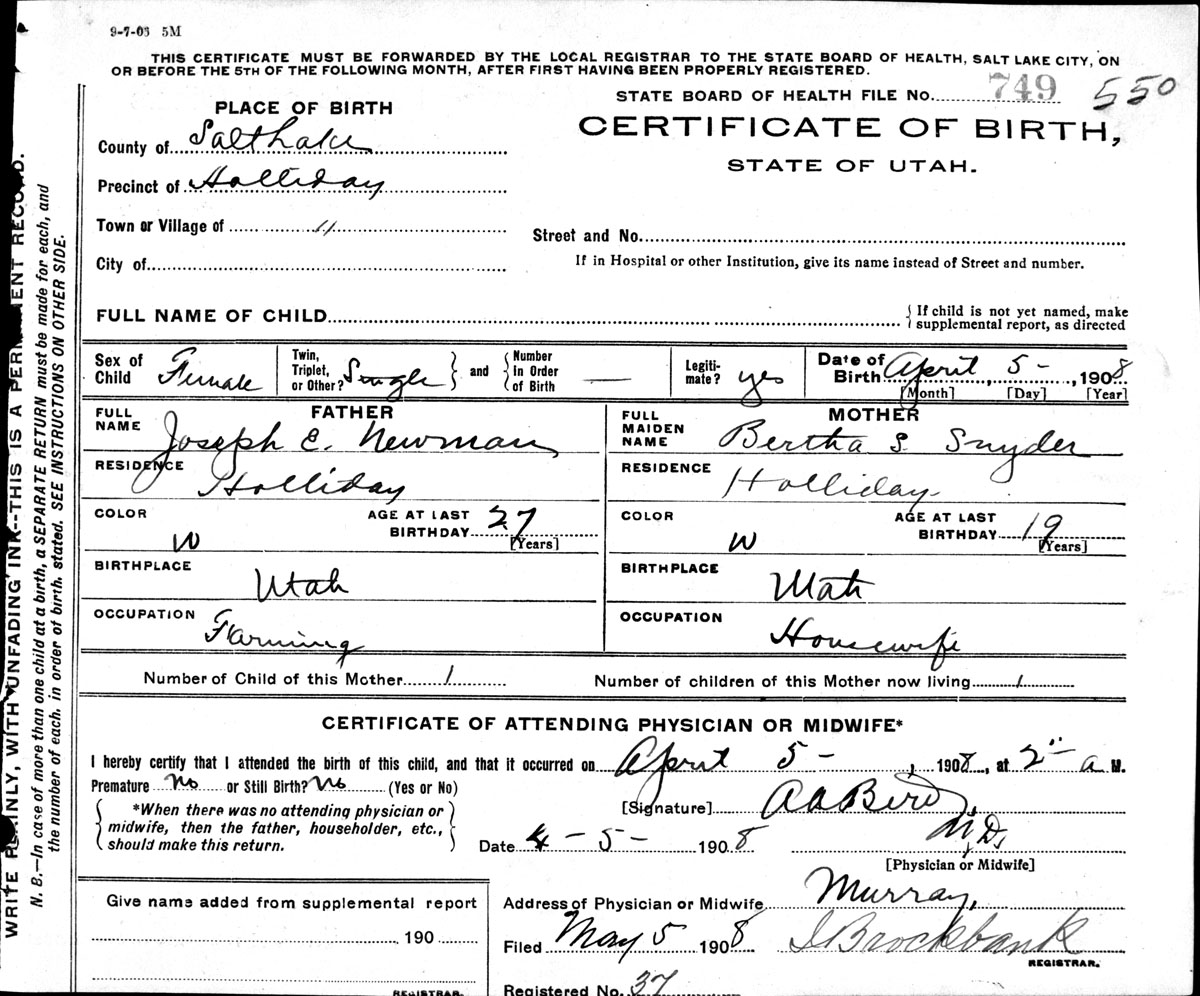 9-7-03 5M
THIS CERTIFICATE MUST BE FORWARDED BY THE LOCAL REGISTRAR TO THE STATE BOARD OF HEALTH, SALT LAKE CITY, ON
OR BEFORE THE 5TH OF THE FOLLOWING MONTH, AFTER FIRST HAVING BEEN PROPERLY REGISTERED.
STATE BOARD OF HEALTH FILE No. 749 550
PLACE OF BIRTH
CERTIFICATE OF BIRTH,
STATE OF UTAH.
County of Salt Lake
Precinct of Holliday
Town or Village of "
Street and No.
City of
If in Hospital or other Institution, give its name instead of Street and number.
FULL NAME OF CHILD { If child is not yet named, make
supplemental report, as directed
Sex of Child Female
Twin, Triplet, or Other? Single } and { Number In Order of Birth —
Legiti-mate? yes
Date of Birth April 5 -, 1908
[Month] [Day] [Year]
FATHER
FULL NAME Joseph E. Newman
RESIDENCE Holliday
COLOR W AGE AT LAST BIRTHDAY 27 [Years]
BIRTHPLACE Utah
OCCUPATION Farming
MOTHER
FULL MAIDEN NAME Bertha S. Snyder
RESIDENCE Holliday
COLOR W AGE AT LAST BIRTHDAY 19 [Years]
BIRTHPLACE Utah
OCCUPATION Housewife
Number of Child of this Mother 1 Number of children of this Mother now living 1
CERTIFICATE OF ATTENDING PHYSICIAN OR MIDWIFE*
I hereby certify that I attended the birth of this child, and that it occurred on April 5 -, 1908, at 2 a M.
Premature No or Still Birth? No (Yes or No)
*When there was no attending physician or
midwife, then the father, householder, etc.,
should make this return.
[Signature] A A Bird,
M.D.
Date 4 - 5 - 1908
[Physician or Midwife]
Give name added from supplemental report
190
REGISTRAR.
Address of Physician or Midwife Murray,
Filed May 5 1908 Brockbank
REGISTRAR.
Registered No. 37
WRITE PLAINLY, WITH UNFADING INK--THIS IS A PERMANENT RECORD.
N. B.—In case of more than one child at a birth, a SEPARATE RETURN must be made for each, and
the number of each, in order of birth, stated. SEE INSTRUCTIONS ON OTHER SIDE.